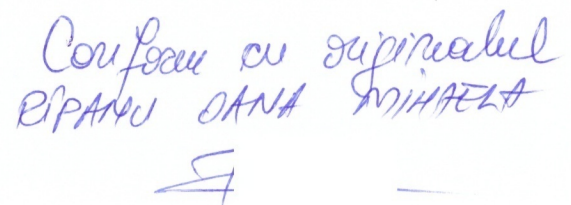 Conform cu originalul
RÎPANU OANA MIHAELA